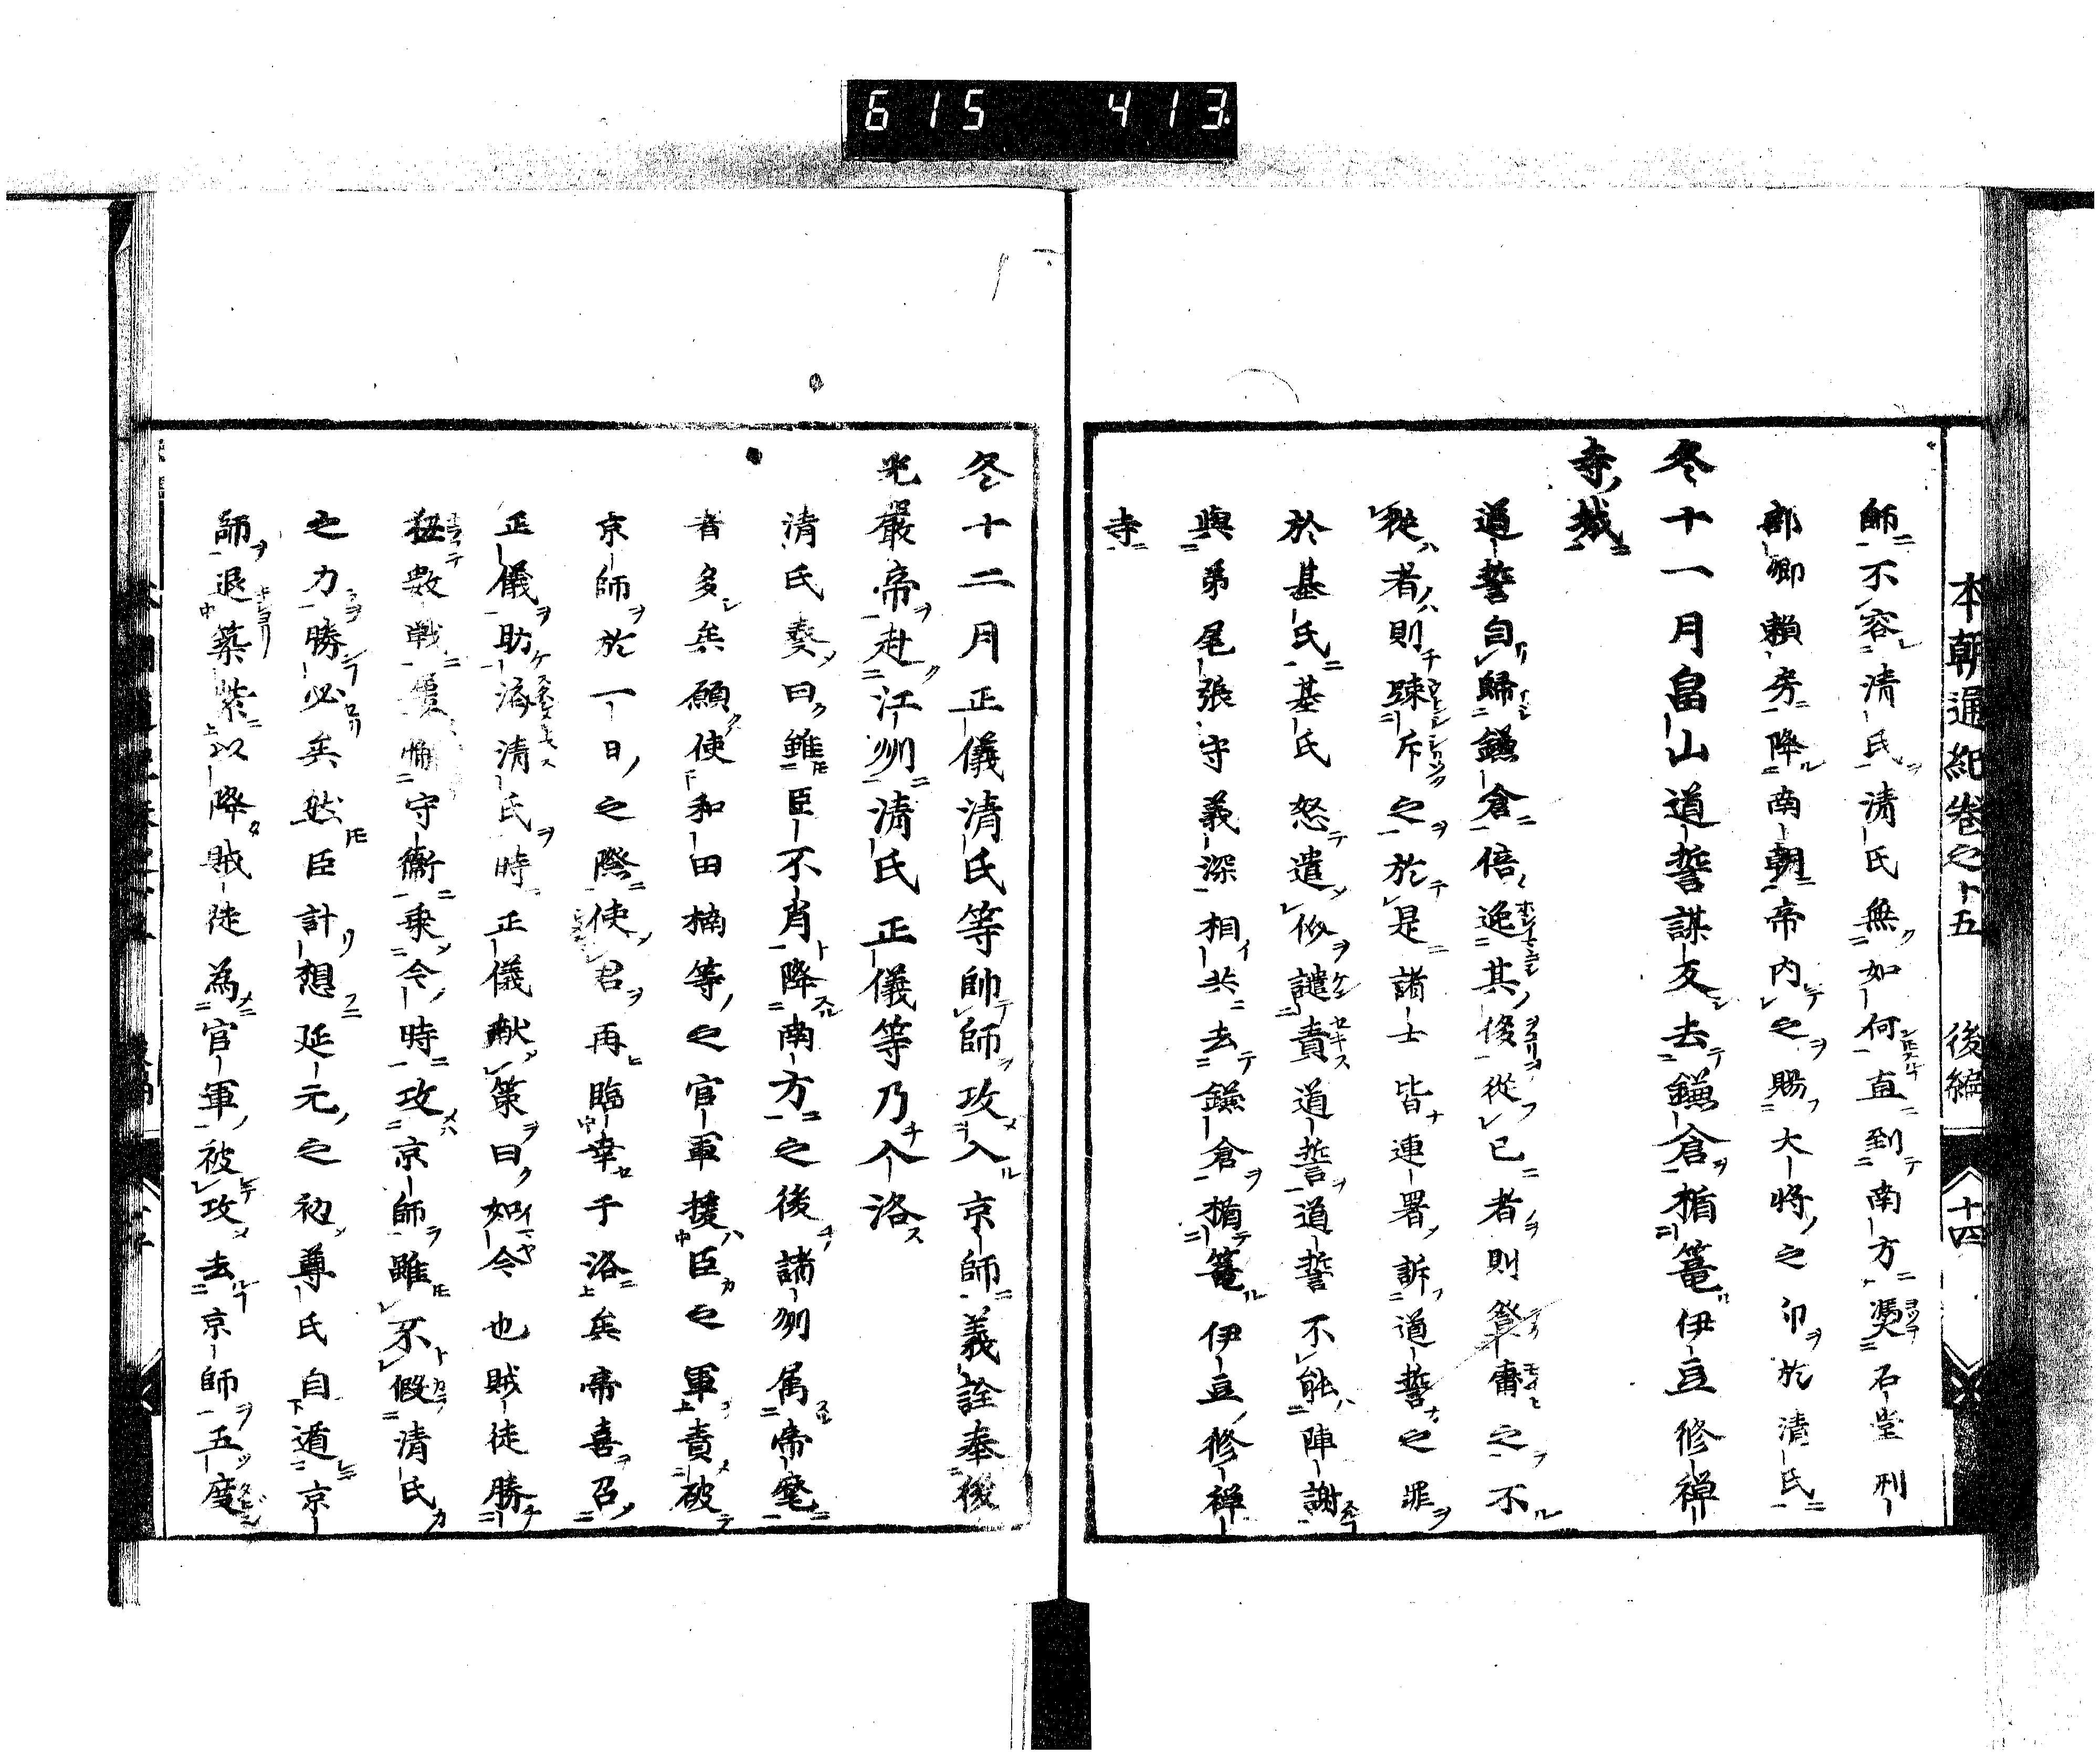 615 413
本朝通紀卷之十五 後編 十四
師不容清氏清氏無如何直到南方憑石堂刑
部卿賴房降南朝帝内之賜大將之印於清氏
冬十一月畠山道誓謀反去鎌倉楯篭伊豆修禅
寺城
道誓自歸鎌倉倍逸其俊從已者則登庸之不
從者則疎斥之於是諸士皆連署訴道誓之罪
於基氏基氏怒遣使譴責道誓道誓不能陣謝
與弟尾張守義深相共去鎌倉楯篭伊豆修禅
寺
冬十二月正儀清氏等帥師攻入京師義詮奉後
光嚴帝赴江州清氏正儀等乃入洛
清氏奏曰雖臣不肖降南方之後諸州属帝麾
者多矣願使和田楠等之官軍援臣之軍責破
京師於一日之際使君再臨幸于洛矣帝喜召
正儀助済清氏時正儀献策曰如今也賊徒勝
数戦守衞乗今時攻京師雖不假清氏
之力勝必矣然臣計想延元之初尊氏自遁京
師退築紫以降賊徒為官軍被攻去京師五度